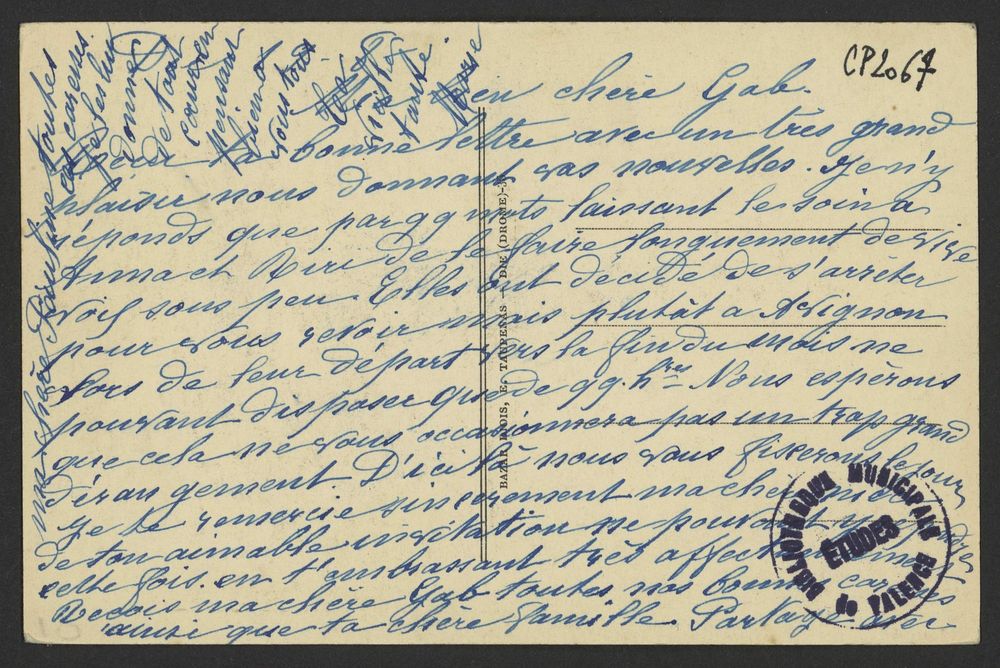 CP2067
Bien chère Gab.
reçu ta bonne lettre avec un très grand
plaisir nous donnant vos nouvelles. Je n'y
réponds que par qq mots laissant le soin a
Anna et Riri de le faire longuement de vive
voix sous peu. Elles ont décidé de s'arrêter
pour vous revoir mais plutôt a Avignon
lors de leur départ vers la fin du mois ne
pouvant disposer que de qq. hres Nous espérons
que cela ne vous occasionnera pas un trop grand
dérangement D'ici là nous vous fixerons le jour
Je te remercie sincèrement ma chère
de ton aimable invitation ne pouvant
cette fois. en t'embrassant très affectueusement
Reçois ma chère Gab toutes nos bonnes caresses
ainsi que ta chère famille. Partage avec
ma chère toutes
ces caresses.
Je les lui
donne
de tout
coeur en
pensant
bien a
vous tous
Votre
tante
Marie
BAZAR DIOIS, E. TAUPENAS — DIE (DROME).
BIBLIOTHEQUE MUNICIPALE
ETUDES
de VALENCE